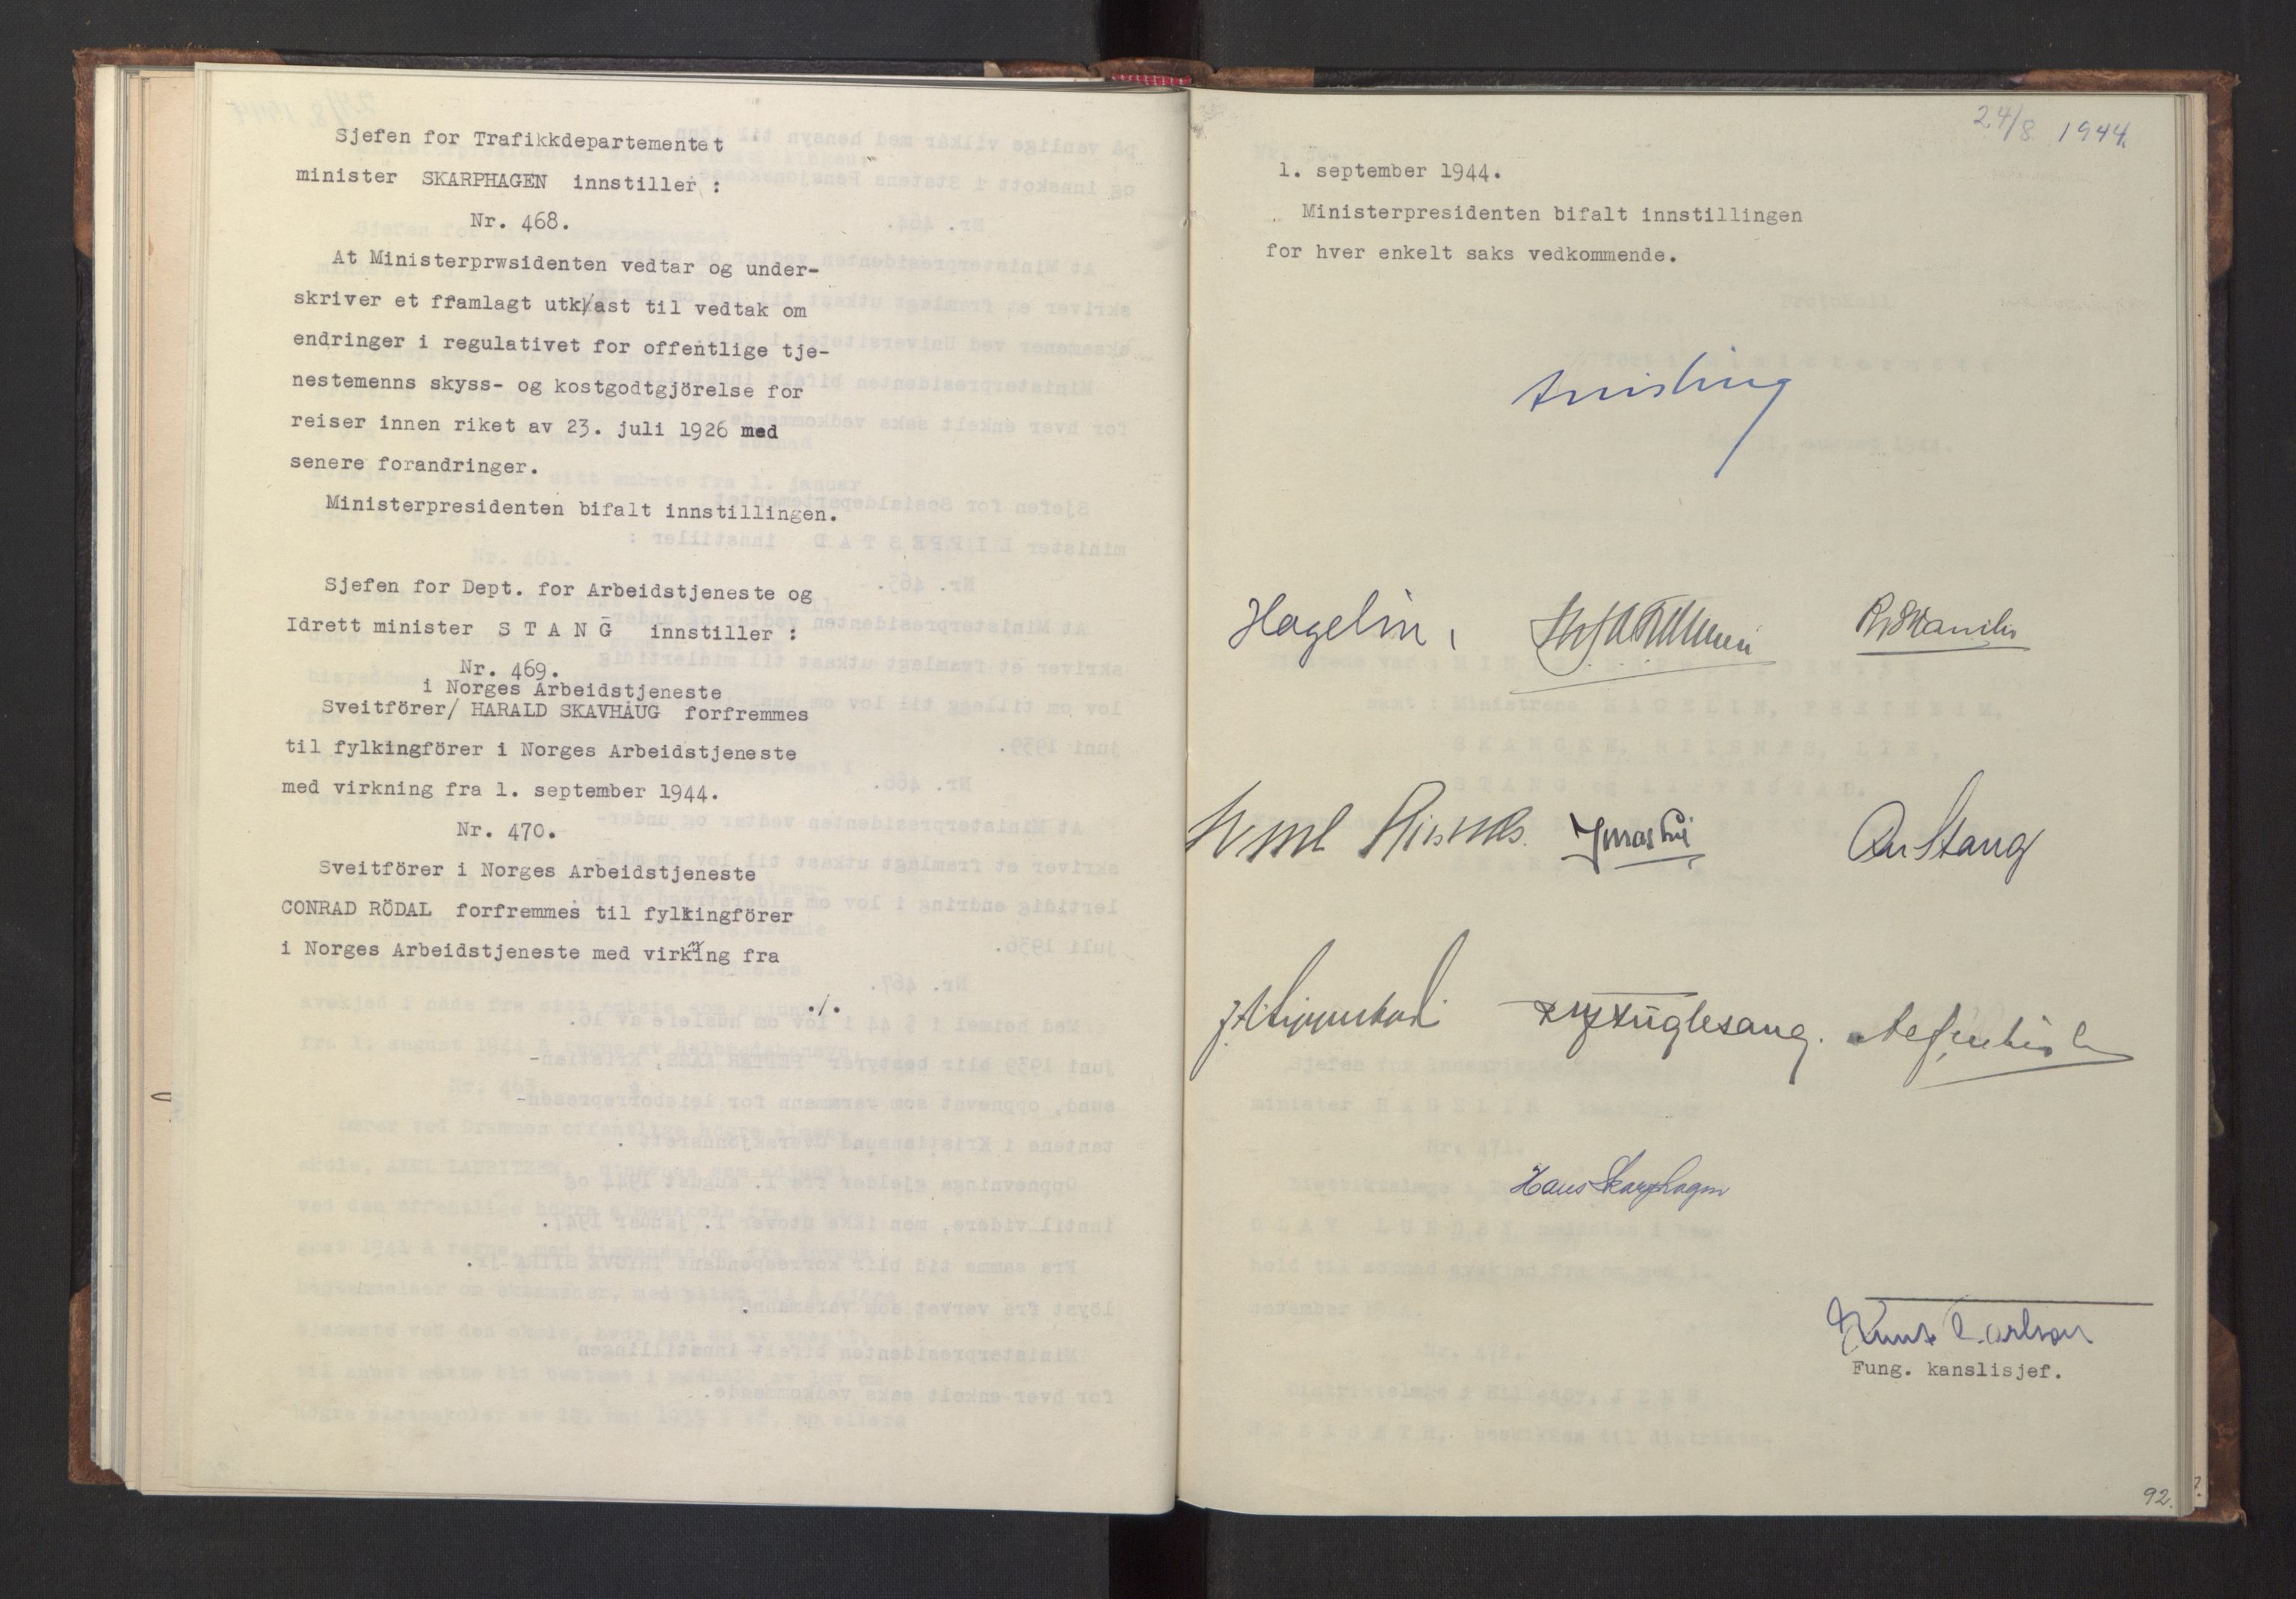 Sjefen for Trafikkdepartementet
minister SKARPHAGEN innstiller :
Nr. 468.
At Ministerprwsidenten vedtar og under-
skriver et fframlagt utk/ast til vedtak om
endringer i regulativet for offentlige tje-
nestemenns skyss- og kostgodtgjörelse for
reiser innen riket av 23. juli 1926 med
senere forandringer.
Ministerpresidenten bifalt innstillingen.
Sjefen for Dept. for Arbeidstjeneste og
Idrett minister S T A N G innstiller :
Nr. 469.
i Norges Arbeidstjeneste
Sveitförer/ HARALD SKAVHAUG forfremmes
til fylkingförer i Norges Arbeidstjeneste
med virkning fra 1. september 1944.
Nr. 470.
Sveitförer i Norges Arbeidstjeneste
CONRAD RÖDAL forfremmes til fylkingförer
i Norges Arbeidstjeneste med virkning fra
./.
24/8 1944.
1. september 1944.
Ministerpresidenten bifalt innstillingen
for hver enkelt saks vedkommende.
Quisling
Hagelin,
R. Skancke
Riisnæs.
Stang
Fuglesang.
Hans Skarphagen
Knut Carlson
Fung. kanslisjef.
92.